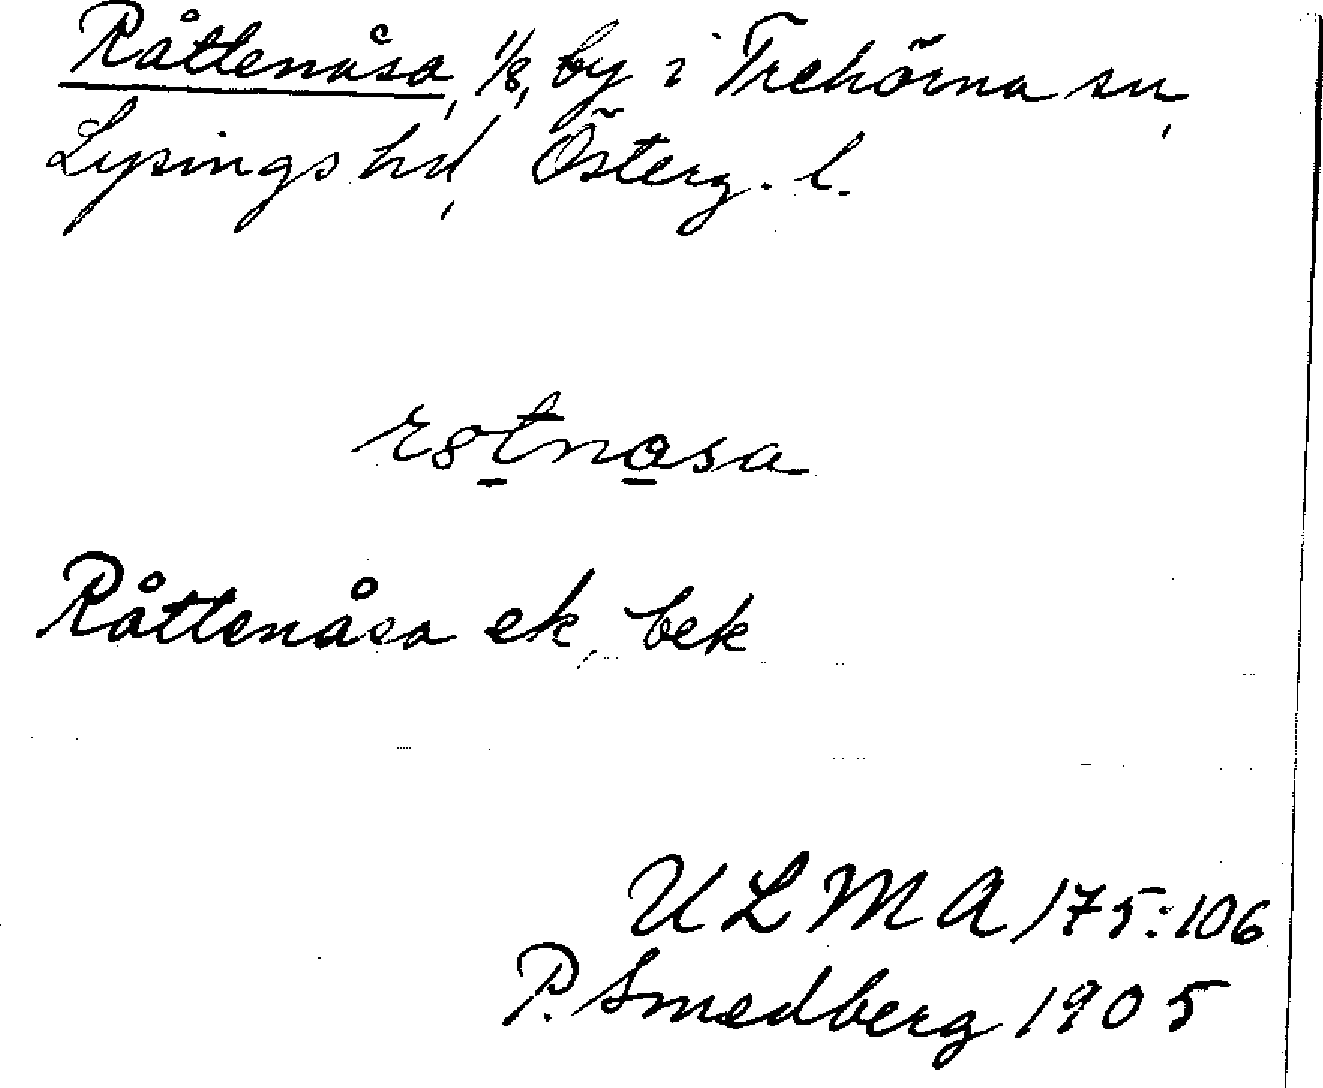 Råttenåsa, 1/8, by i Trehörna sn,
Lysings hd, Österg. l.
r8tnåsa
Råttenåsa ek, bek
ULMA 175:106
P. Smedberg 1905